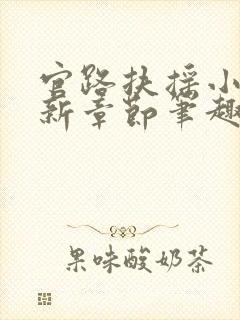 官路扶摇小
新章节笔趣
果味酸奶茶